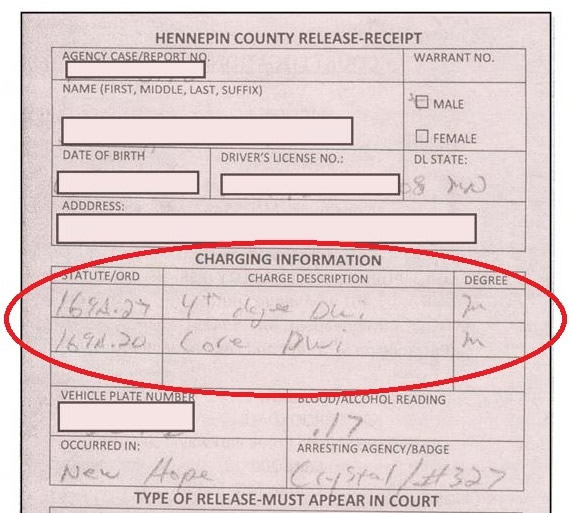 HENNEPIN COUNTY RELEASE-RECEIPT
AGENCY CASE/REPORT NO. WARRANT NO.
NAME (FIRST, MIDDLE, LAST, SUFFIX) MALE
FEMALE
DATE OF BIRTH DRIVER'S LICENSE NO.: DL STATE:
08 MN
ADDDRESS:
CHARGING INFORMATION
STATUTE/ORD CHARGE DESCRIPTION DEGREE
169A.27 4th degree DWi m
169A.20 Core DWi m
VEHICLE PLATE NUMBER BLOOD/ALCOHOL READING
.17
OCCURRED IN: ARRESTING AGENCY/BADGE
New Hope Crystal/#327
TYPE OF RELEASE-MUST APPEAR IN COURT